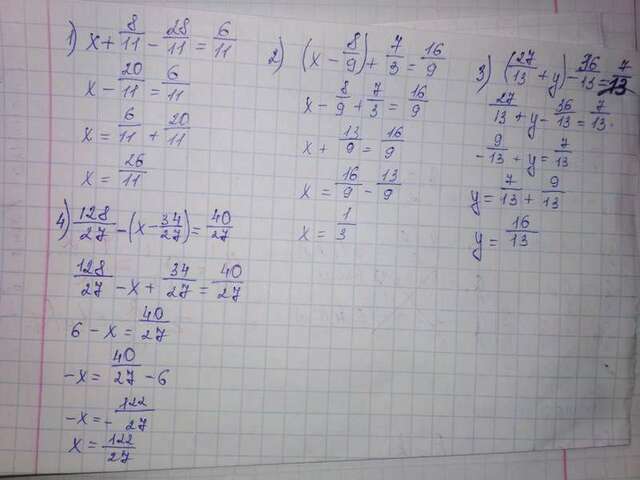 1) x + 8/11 - 28/11 = 6/11
x - 20/11 = 6/11
x = 6/11 + 20/11
x = 26/11
2) (x - 8/9) + 7/3 = 16/9
x - 8/9 + 7/3 = 16/9
x + 13/9 = 16/9
x = 16/9 - 13/9
x = 1/3
3) (27/13 + y) - 36/13 = 7/13
27/13 + y - 36/13 = 7/13.
- 9/13 + y = 7/13
y = 7/13 + 9/13
y = 16/13
4) 128/27 - (x - 34/27) = 40/27
128/27 - x + 34/27 = 40/27
6 - x = 40/27
-x = 40/27 - 6
-x = - 122/27
x = 122/27